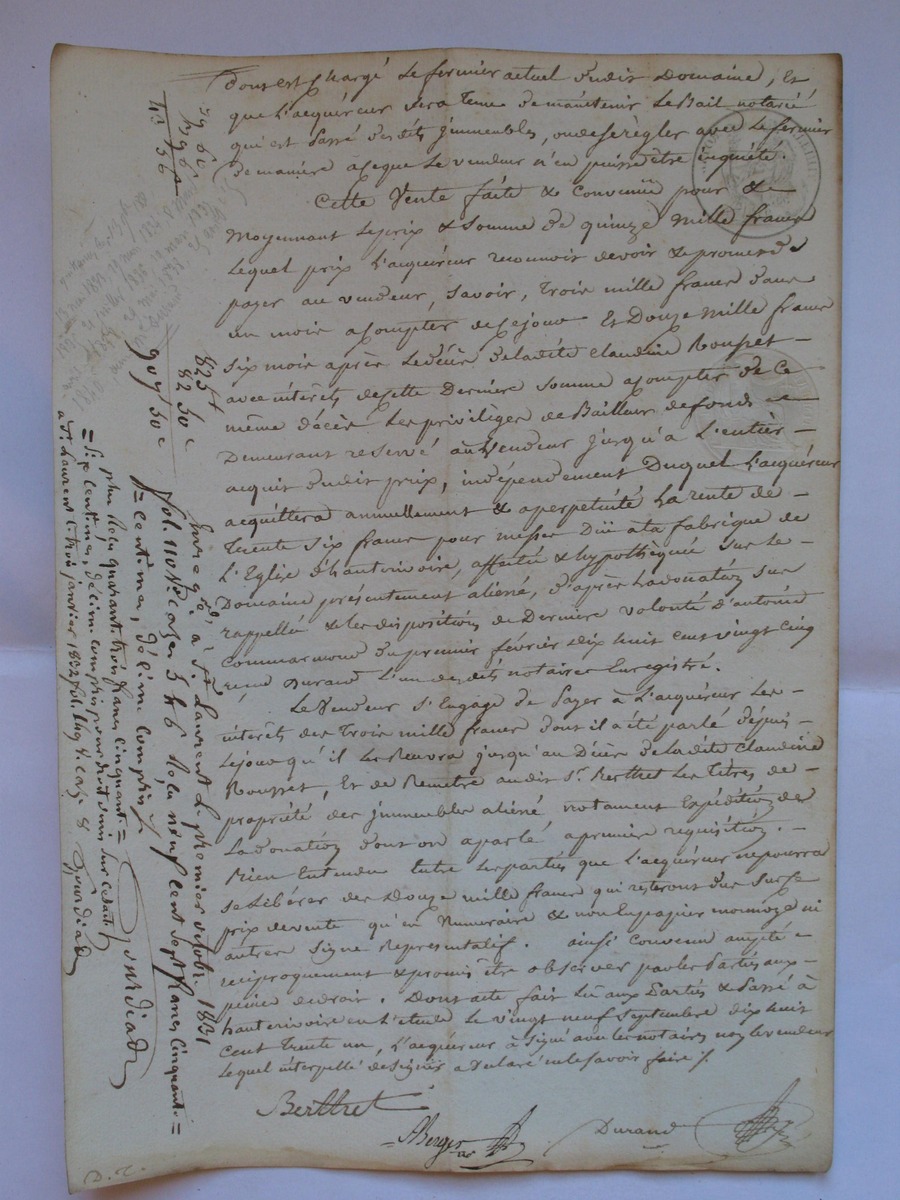 dont est chargé le fermier actuel dudit Domaine, et
que l'acquéreur sera tenu de maintenir le Bail notarié
qui est passé desdits jmmeubles, ou de se règler avec le fermier
de manière à ce que le vendeur n'en puisse être inquiété.
Cette vente faite & convenüe pour &
moyennant le prix & somme de quinze mille francs
lequel prix l'acquéreur reconnoit devoir & promet de
payer au vendeur, savoir, trois mille francs dans
un mois à compter de ce jour et Douze mille francs
six mois après le décès de ladite Claudine Rousset
avec intérêts de cette Dernière somme à compter de ce
même décès les privilèges de Bailleur de fonds
Demeurant reservé au Vendeur jusqu'à l'entier
acquit dudit prix, indépendament Duquel l'acquéreur
acquittera annuellement & à perpétuité la rente de
trente six francs pour messes Düe à la fabrique de
l'Eglise d'hauterivoire, affectée & hypothèquée sur le
Domaine présentement aliéné, d'après la donation sus
rappellée & les dispositions de Dernière volonté d'antoine
Commarmond du premier février dix huit cent vingt cinq
reçu Durand l'un desdits notaires Enregistré.
Le Vendeur s'Engage de Payer à l'acquéreur les
intérêts des Trois mille francs dont il a été parlé depuis
le jour qu'il les recevra jusqu'au Décès de ladite Claudine
Rousset, Et de Remettre audit Sr. Berthet les titres de
propriété des jmmeubles aliéné, notament Expédition de
la donation dont on a parlé à première requisition.
Bien Entendu entre les parties que l'acquéreur ne pourra
se libérer des Douze mille francs qui resteront dus sur le
prix de vente qu'en Numéraire & non En papier monnoye ni
autres signe Représentatif. ainsi convenu accepté
réciproquement & promis être observer par les Parties aux
peine de droit. Dont acte fait lu aux Parties & Passé à
hauterivoire en l'étude le vingt neuf Septembre dix huit
Cent Trente un, l'acquéreur à signé avec les notaires non le vendeur
lequel interpellé de signer a Déclaré ne le savoir faire
Berthet
ABerger
Durand
D. T.
825
82 50c
907 50c
Enregistré à St Laurent le premier octobre 1831
fol. 110 Vo cases 5 & 6 Reçu neuf cent sept francs cinquante
centimes, décime compris
Gourdiad
plus Reçu quarante trois francs cinquante
six centimes, décime compris
à St Laurent le trois janvier 1832
Gourdiad